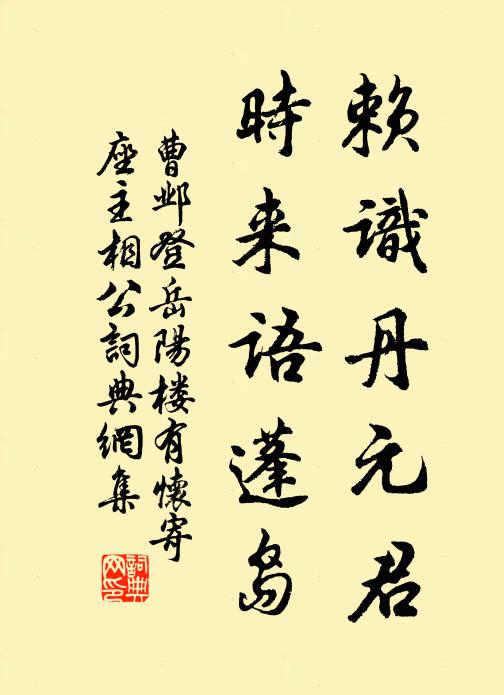 賴識丹元君
時來语蓬岛
曹邺登岳陽楼有懷寄
座主相公詞典網集
詞典网印